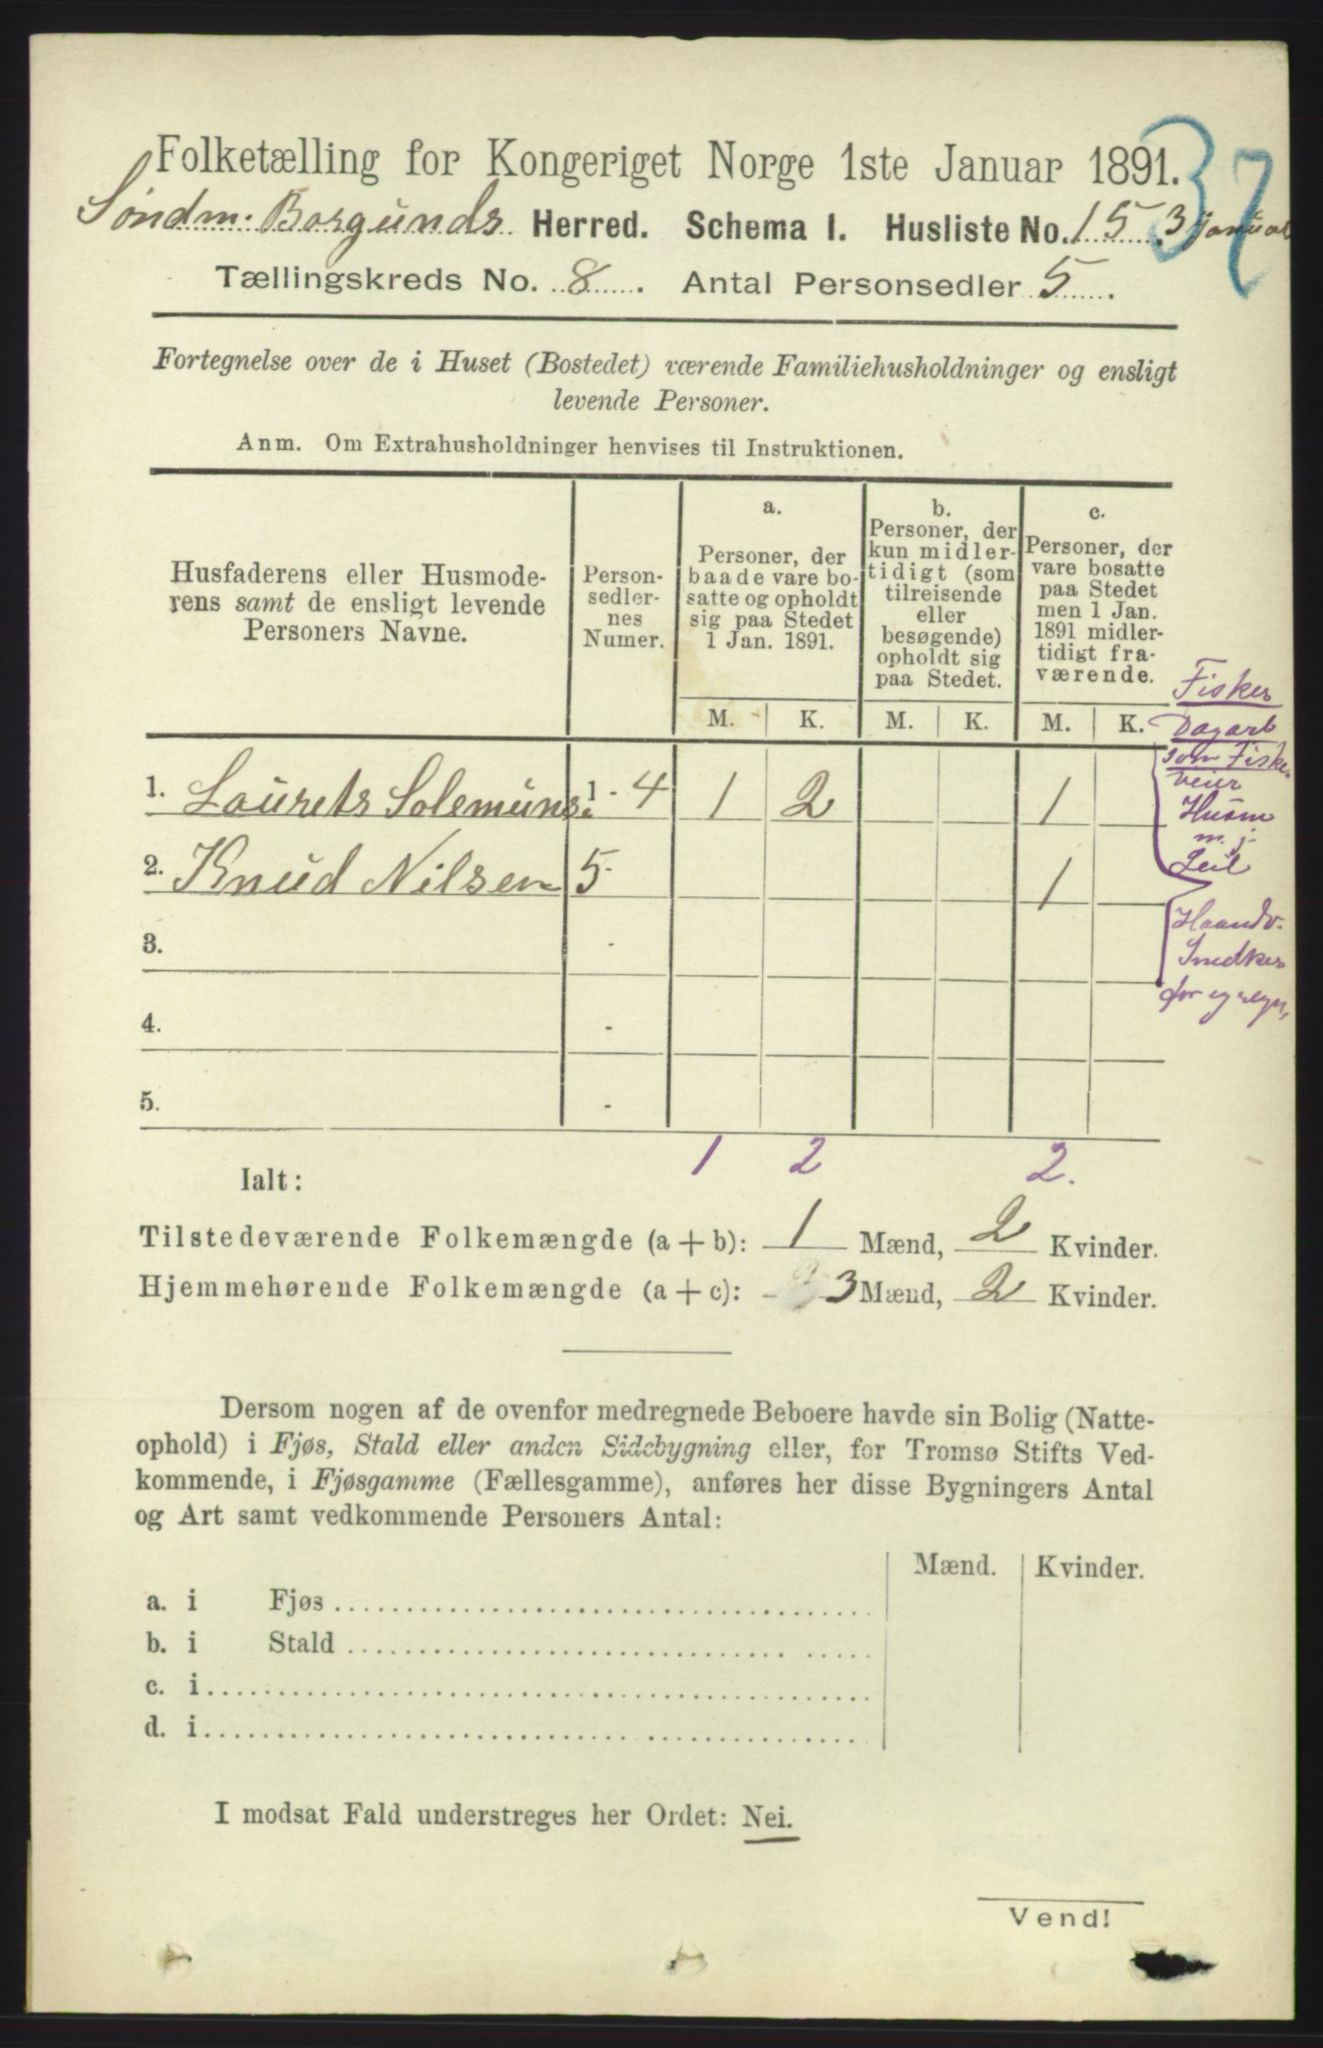 Folketælling for Kongeriget Norge 1ste Januar 1891.
37
Søndm. Borgunds Herred. Schema I. Husliste No. 15. 3 Januar
Tællingskreds No. 8. Antal Personsedler 5.
Fortegnelse over de i Huset (Bostedet) værende Familiehusholdninger og ensligt
levende Personer.
Anm. Om Extrahusholdninger henvises til Instruktionen.
Husfaderens eller Husmode-
rens samt de ensligt levende
Personers Navne.
Person-
sedler-
nes
Numer.
a.
Personer, der
baade vare bo-
satte og opholdt
sig paa Stedet
1 Jan. 1891.
b.
Personer, der
kun midler-
tidigt (som
tilreisende
eller
besøgende)
opholdt sig
paa Stedet.
c.
Personer, der
vare bosatte
paa Stedet
men 1 Jan.
1891 midler-
tidigt fra-
værende.
M. K. M. K. M. K.
1. Laurets Solemuns. 1 - 4 1 2 1
2. Knud Nilsen 5 - 1
3. -
4. -
5. -
Fisker
Dagarb
som Fiske
veier
Husm
m. j.
Leil
Haandv.
Snedker
for eg regn.
1 2 2.
Ialt:
Tilstedeværende Folkemængde (a + b): 1 Mænd, 2 Kvinder.
Hjemmehørende Folkemængde (a + c): 3 Mænd, 2 Kvinder.
Dersom nogen af de ovenfor medregnede Beboere havde sin Bolig (Natte-
ophold) i Fjøs, Stald eller anden Sidebygning eller, for Tromsø Stifts Ved-
kommende, i Fjøsgamme (Fællesgamme), anføres her disse Bygningers Antal
og Art samt vedkommende Personers Antal:
Mænd. Kvinder.
a. i Fjøs
b. i Stald
c. i
d. i
I modsat Fald understreges her Ordet: Nei.
Vend!